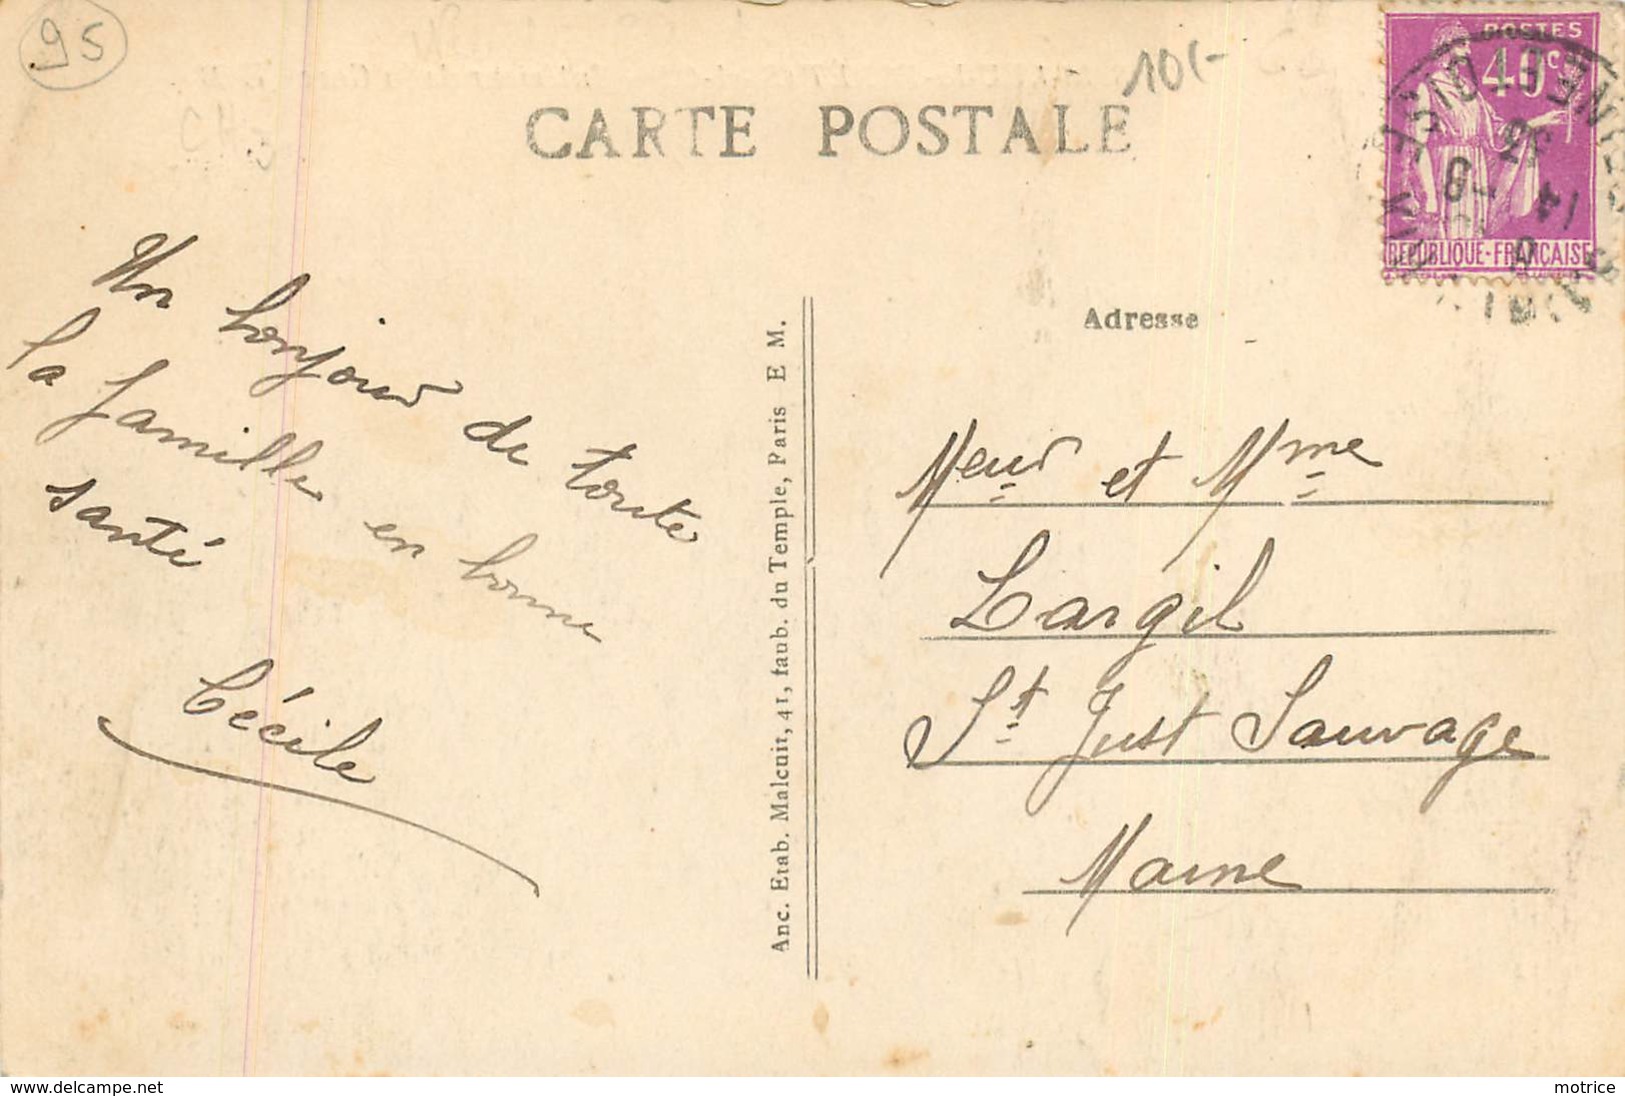 95
10/-
CARTE POSTALE
POSTES
40c
REPUBLIQUE-FRANÇAISE
SEINE ET OISE
Un bonjour de toute
la famille en bonne
santé
Cécile
Anc. Etab. Malcuit, 41, faub. du Temple, Paris E M.
Adresse
Meur et Mme
Largil
St Just Sauvage
Marne
www.delcampe.net
motrice